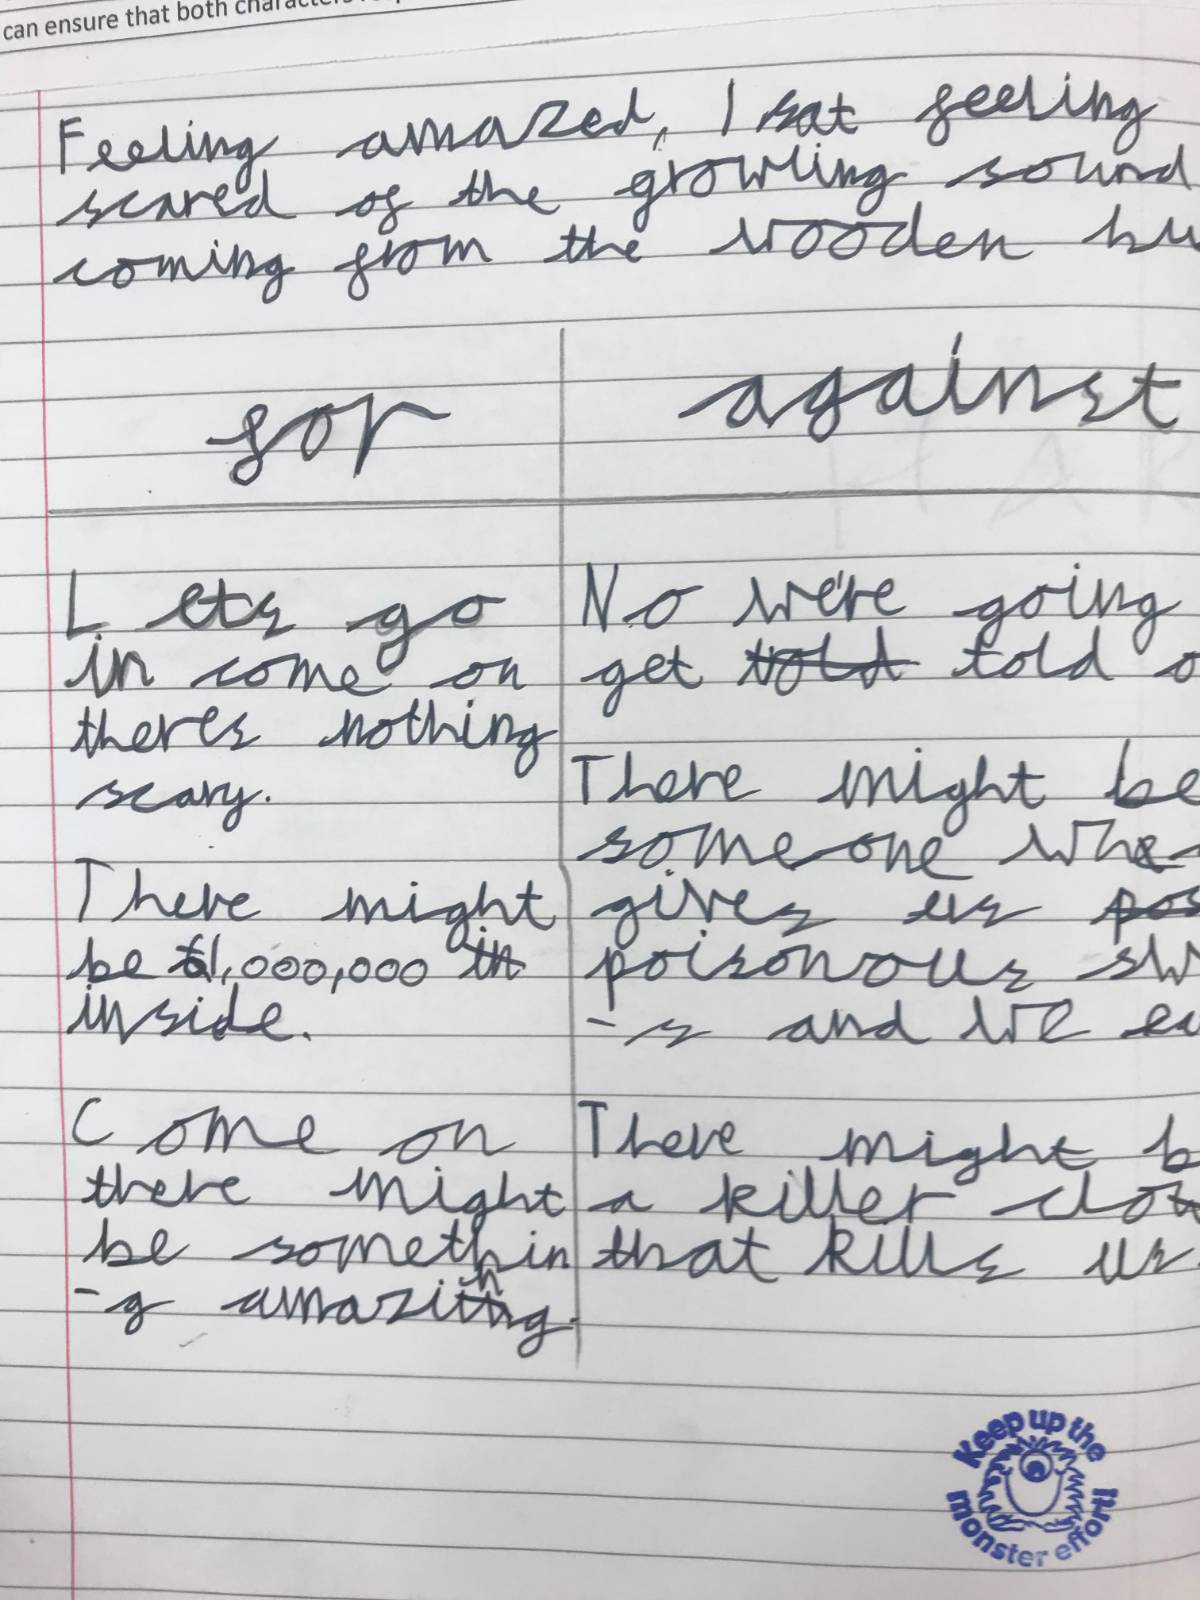 can ensure that both characters
Feeling amazed, I sat feeling
scared of the growling sound
coming from the wooden hu
for
against
Lets go
in come on
there's nothing
scary.
There might
be £1,000,000 in
inside.
Come on
there might
be somethin
-g amazing.
No we're going
get told told o
There might be
someone who
gives us pos
poisonous sw
-s and we ea
There might b
a killer clow
that kills us.
Keep up the
monster effort!